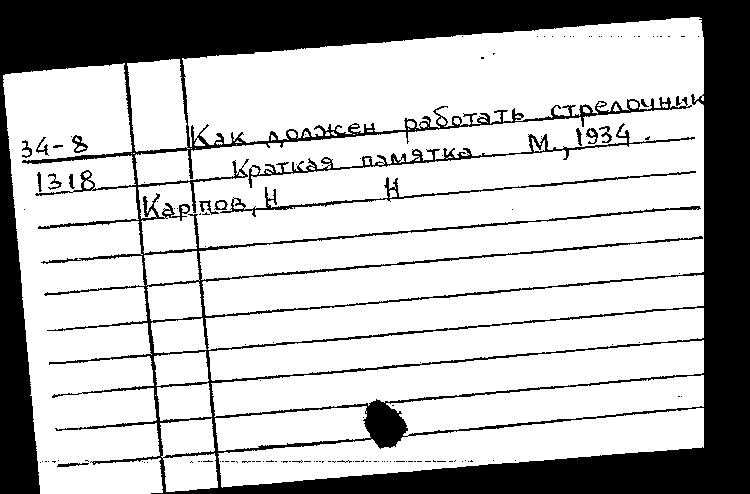 34-8 Как должен работать стрелочник
1318 Краткая памятка. М., 1934.
Карпов, Н Н